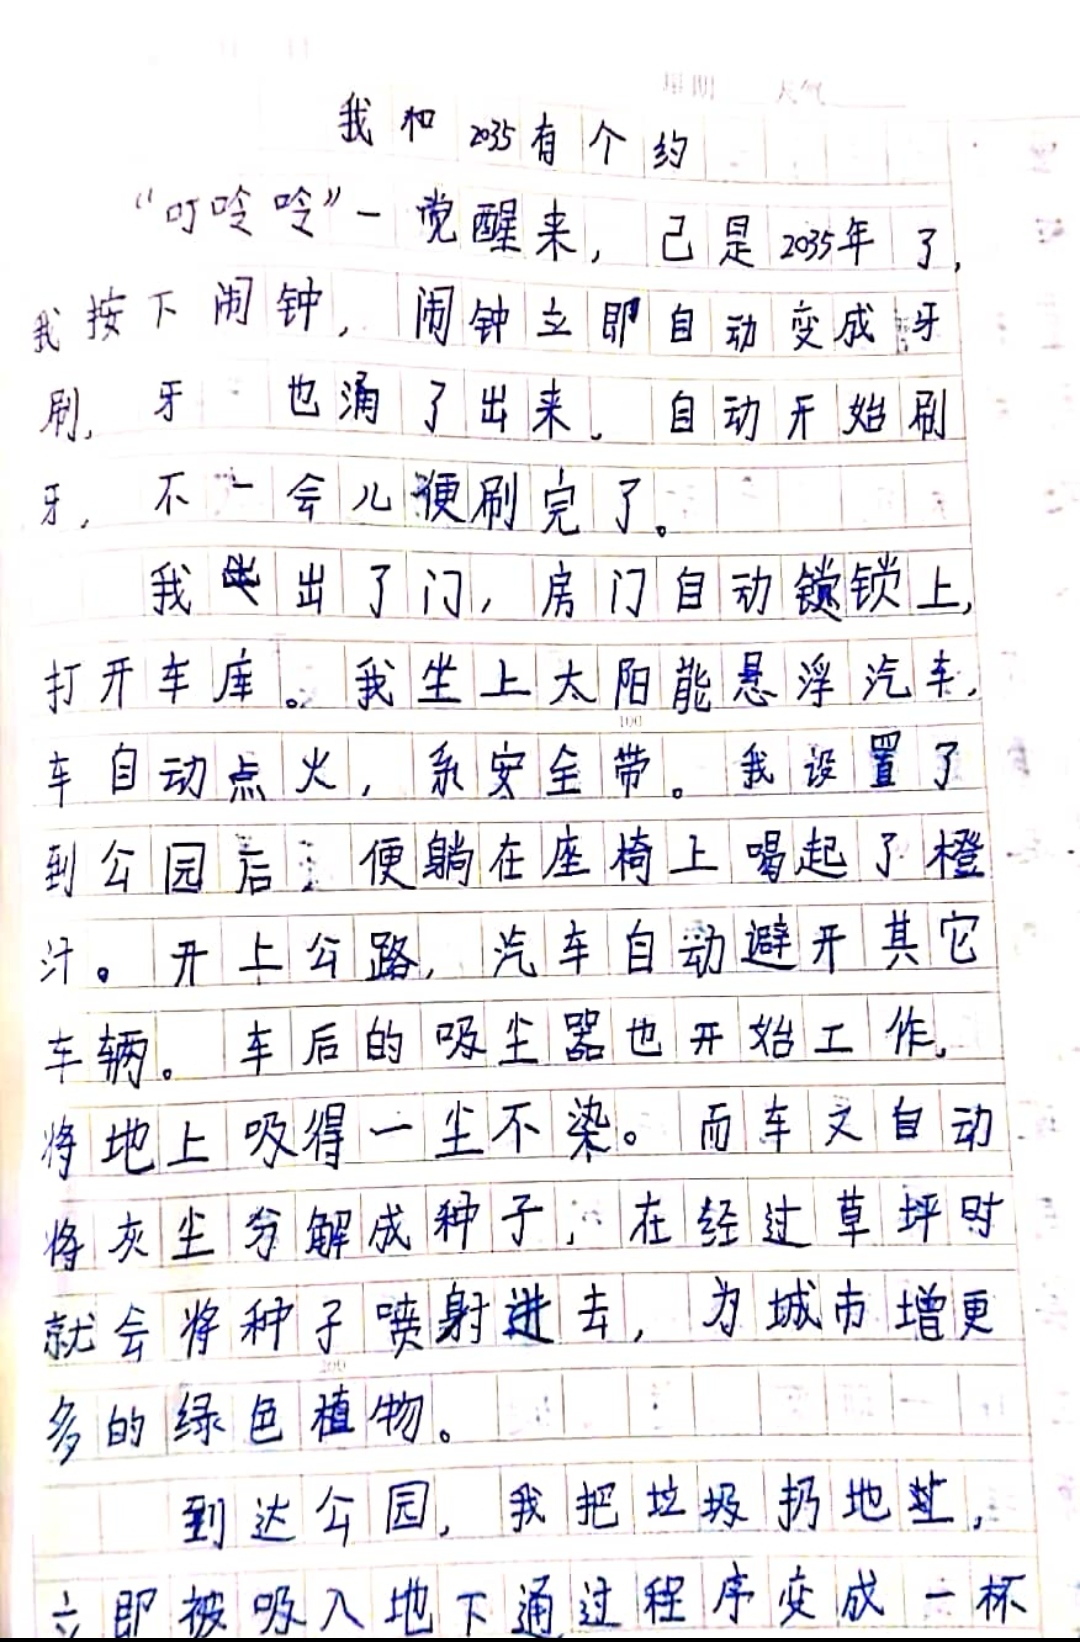 星期 天气
我和2035有个约
“叮呤呤”一觉醒来，己是2035年了，
我按下闹钟，闹钟立即自动变成牙
刷，牙 也涌了出来。自动开始刷
牙，不一会儿便刷完了。
我出了门，房门自动锁上，
打开车库。我坐上太阳能悬浮汽车，
100
车自动点火，系安全带。我设置了
到公园后，便躺在座椅上喝起了橙
汁。开上公路，汽车自动避开其它
车辆。车后的吸尘器也开始工作，
将地上吸得一尘不染。而车又自动
将灰尘分解成种子，在经过草坪时
就会将种子喷射进去，为城市增更
200
多的绿色植物。
到达公园，我把垃圾扔地上，
立即被吸入地下通过程序变成一杯